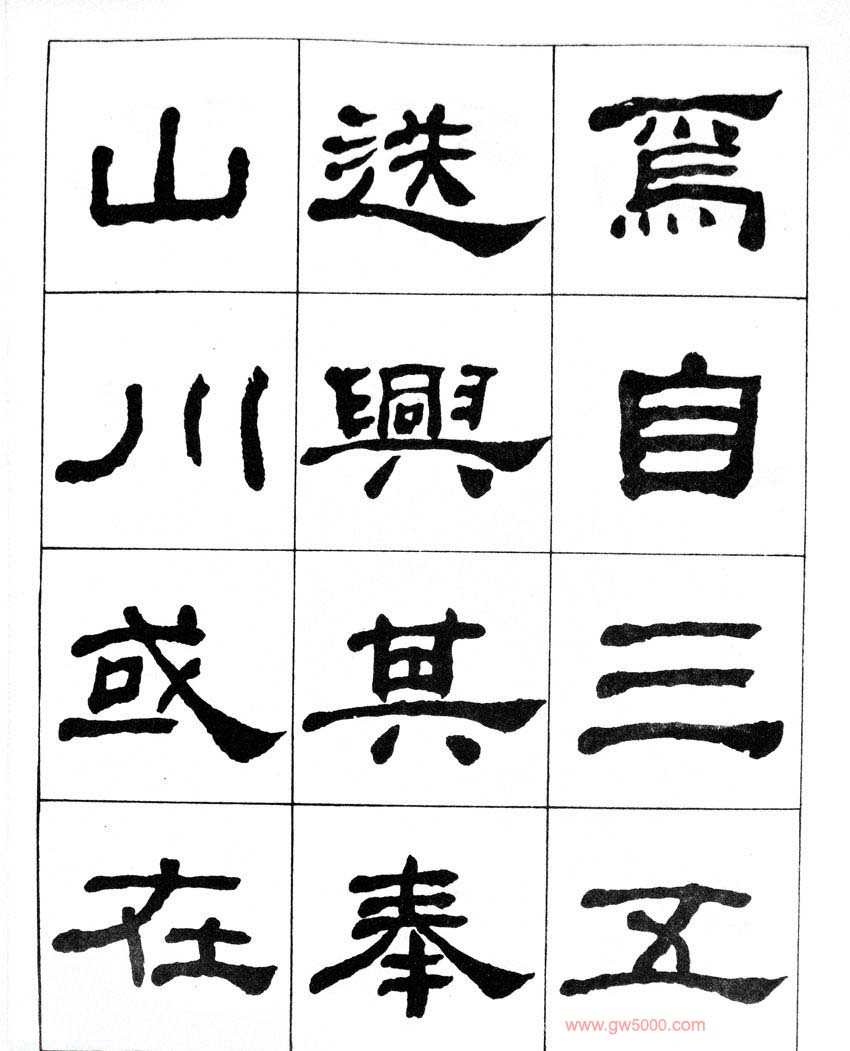 焉自三五
迭興其奉
山川或在
www.gw5000.com